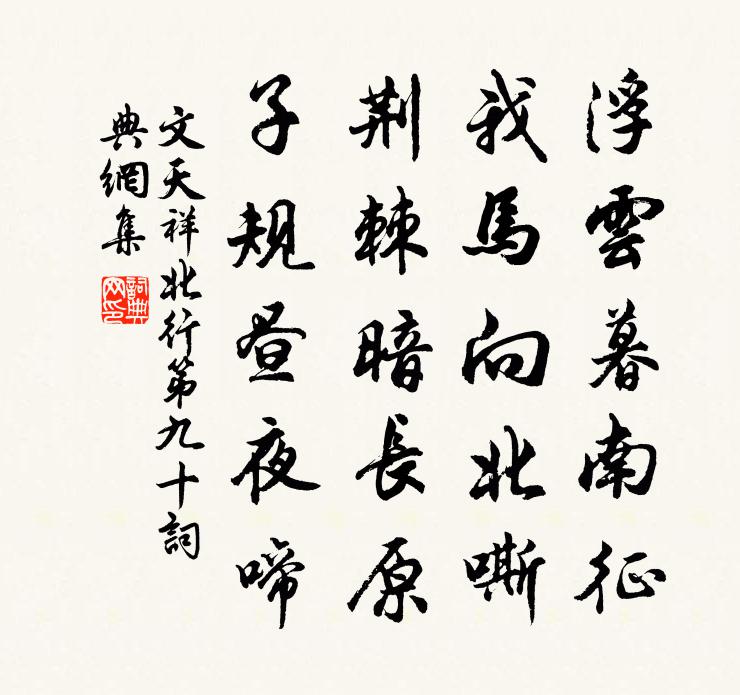 浮雲暮南征
我馬向北嘶
荆棘暗長原
子規昼夜啼
文天祥北行第九十詞
典網集
詞典
网印